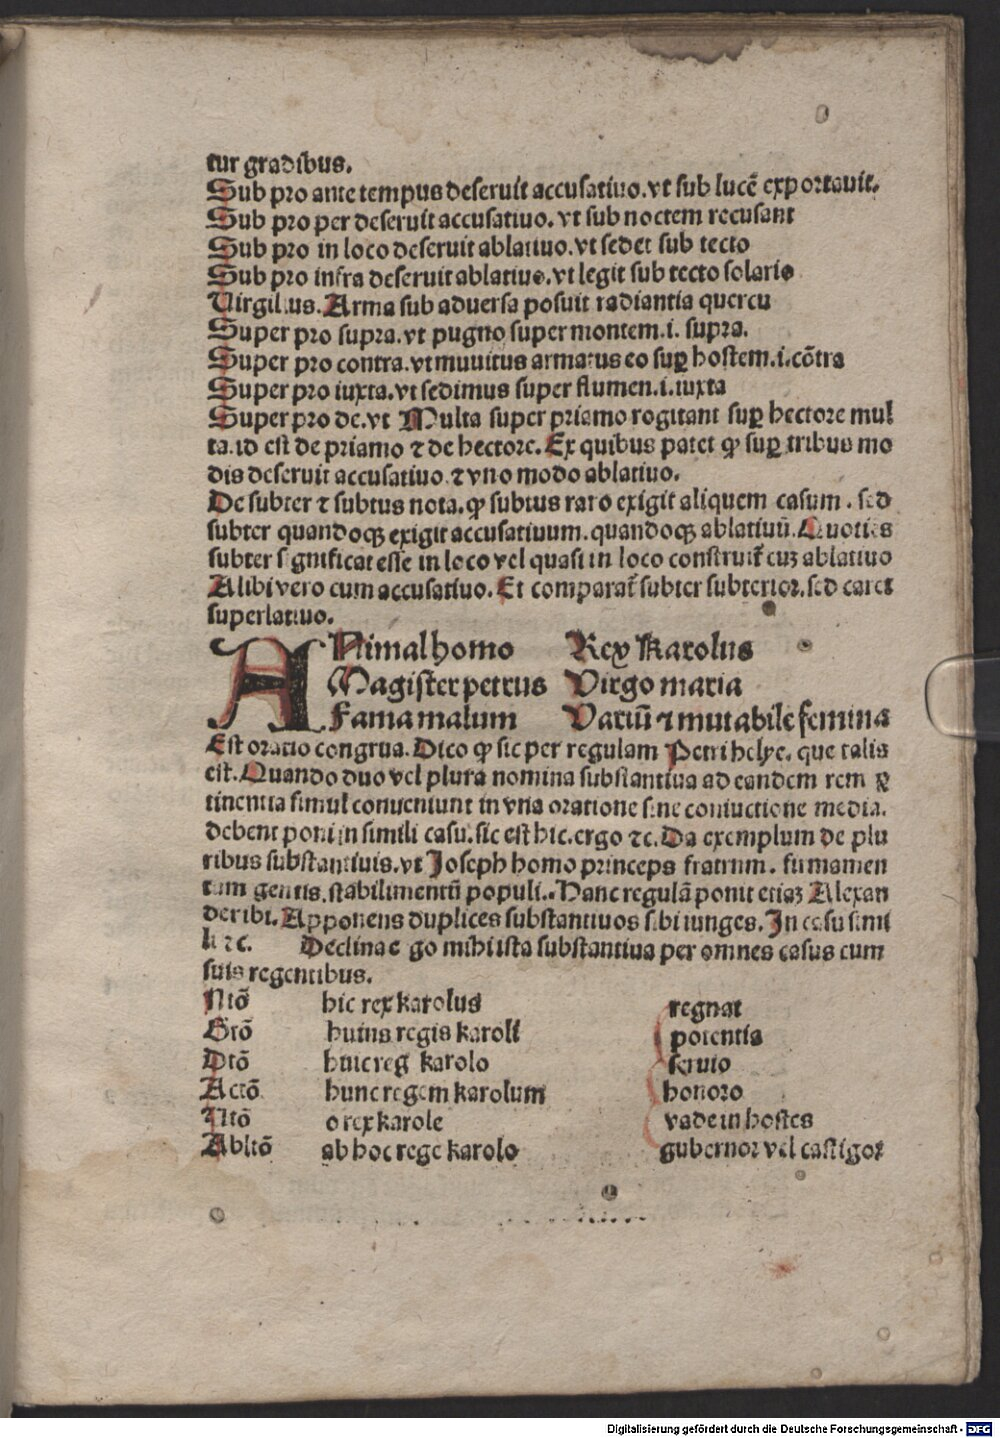 tur gradibus.
Sub pro ante tempus deseruit accusatiuo. vt sub lucē exportauit.
Sub pro per deseruit accusatiuo. vt sub noctem recusant
Sub pro in loco deseruit ablatiuo. vt sedet sub tecto
Sub pro infra deseruit ablatiuo. vt legit sub tecto solario
Uirgilius. Arma sub aduersa posuit radiantia quercu
Super pro supra. vt pugno super montem. i. supra.
Super pro contra. vt muuitus armatus eo suꝑ hostem. i. cōtra
Super pro iuxta. vt sedimus super flumen. i. iuxta
Super pro de. vt Multa super priamo rogitant suꝑ hectore mul
ta. id est de priamo ⁊ de hectore. Ex quibus patet ꝙ suꝑ tribus mo
dis deseruit accusatiuo ⁊ vno modo ablatiuo.
De subter ⁊ subtus nota. ꝙ subtus raro exigit aliquem casum. sed
subter quandoqꝫ exigit accusatiuum. quandoqꝫ ablatiuū. Quoties
subter significat esse in loco vel quasi in loco construit̄ cuꝫ ablatiuo
Alibi vero cum accusatiuo. Et comparat̄ subter subterior. sed caret
superlatiuo.
ANimal homo Rex Karolus
Magister petrus Virgo maria
Fama malum Variū ⁊ mutabile femina
Est oratio congrua. Dico ꝙ sic per regulam Petri helye. que talis
est. Quando duo vel plura nomina substantiua ad eandem rem ꝑ
tinentia simul conueniunt in vna oratione sine coniuctione media.
debent poni in simili casu. sic est hic. ergo ⁊c. Da exemplum de plu
ribus substantiuis. vt Joseph homo princeps fratrum. firmamen
tum gentis. stabilimentū populi.. Hanc regulā ponit etiaꝫ Alexan
der ibi. Apponens duplices substantiuos sibi iunges. In casu simi
li ⁊c. Declina ego mihi ista substantiua per omnes casus cum
suis regentibus.
Ntō hic rex karolus regnat
Gtō huius regis karoli potentia
Dtō huic reg karolo seruio
Actō hunc regem karolum honoro
Vtō o rex karole vade in hostes
Abltō ab hoc rege karolo gubernor vel castigor
Digitalisierung gefördert durch die Deutsche Forschungsgemeinschaft - DFG